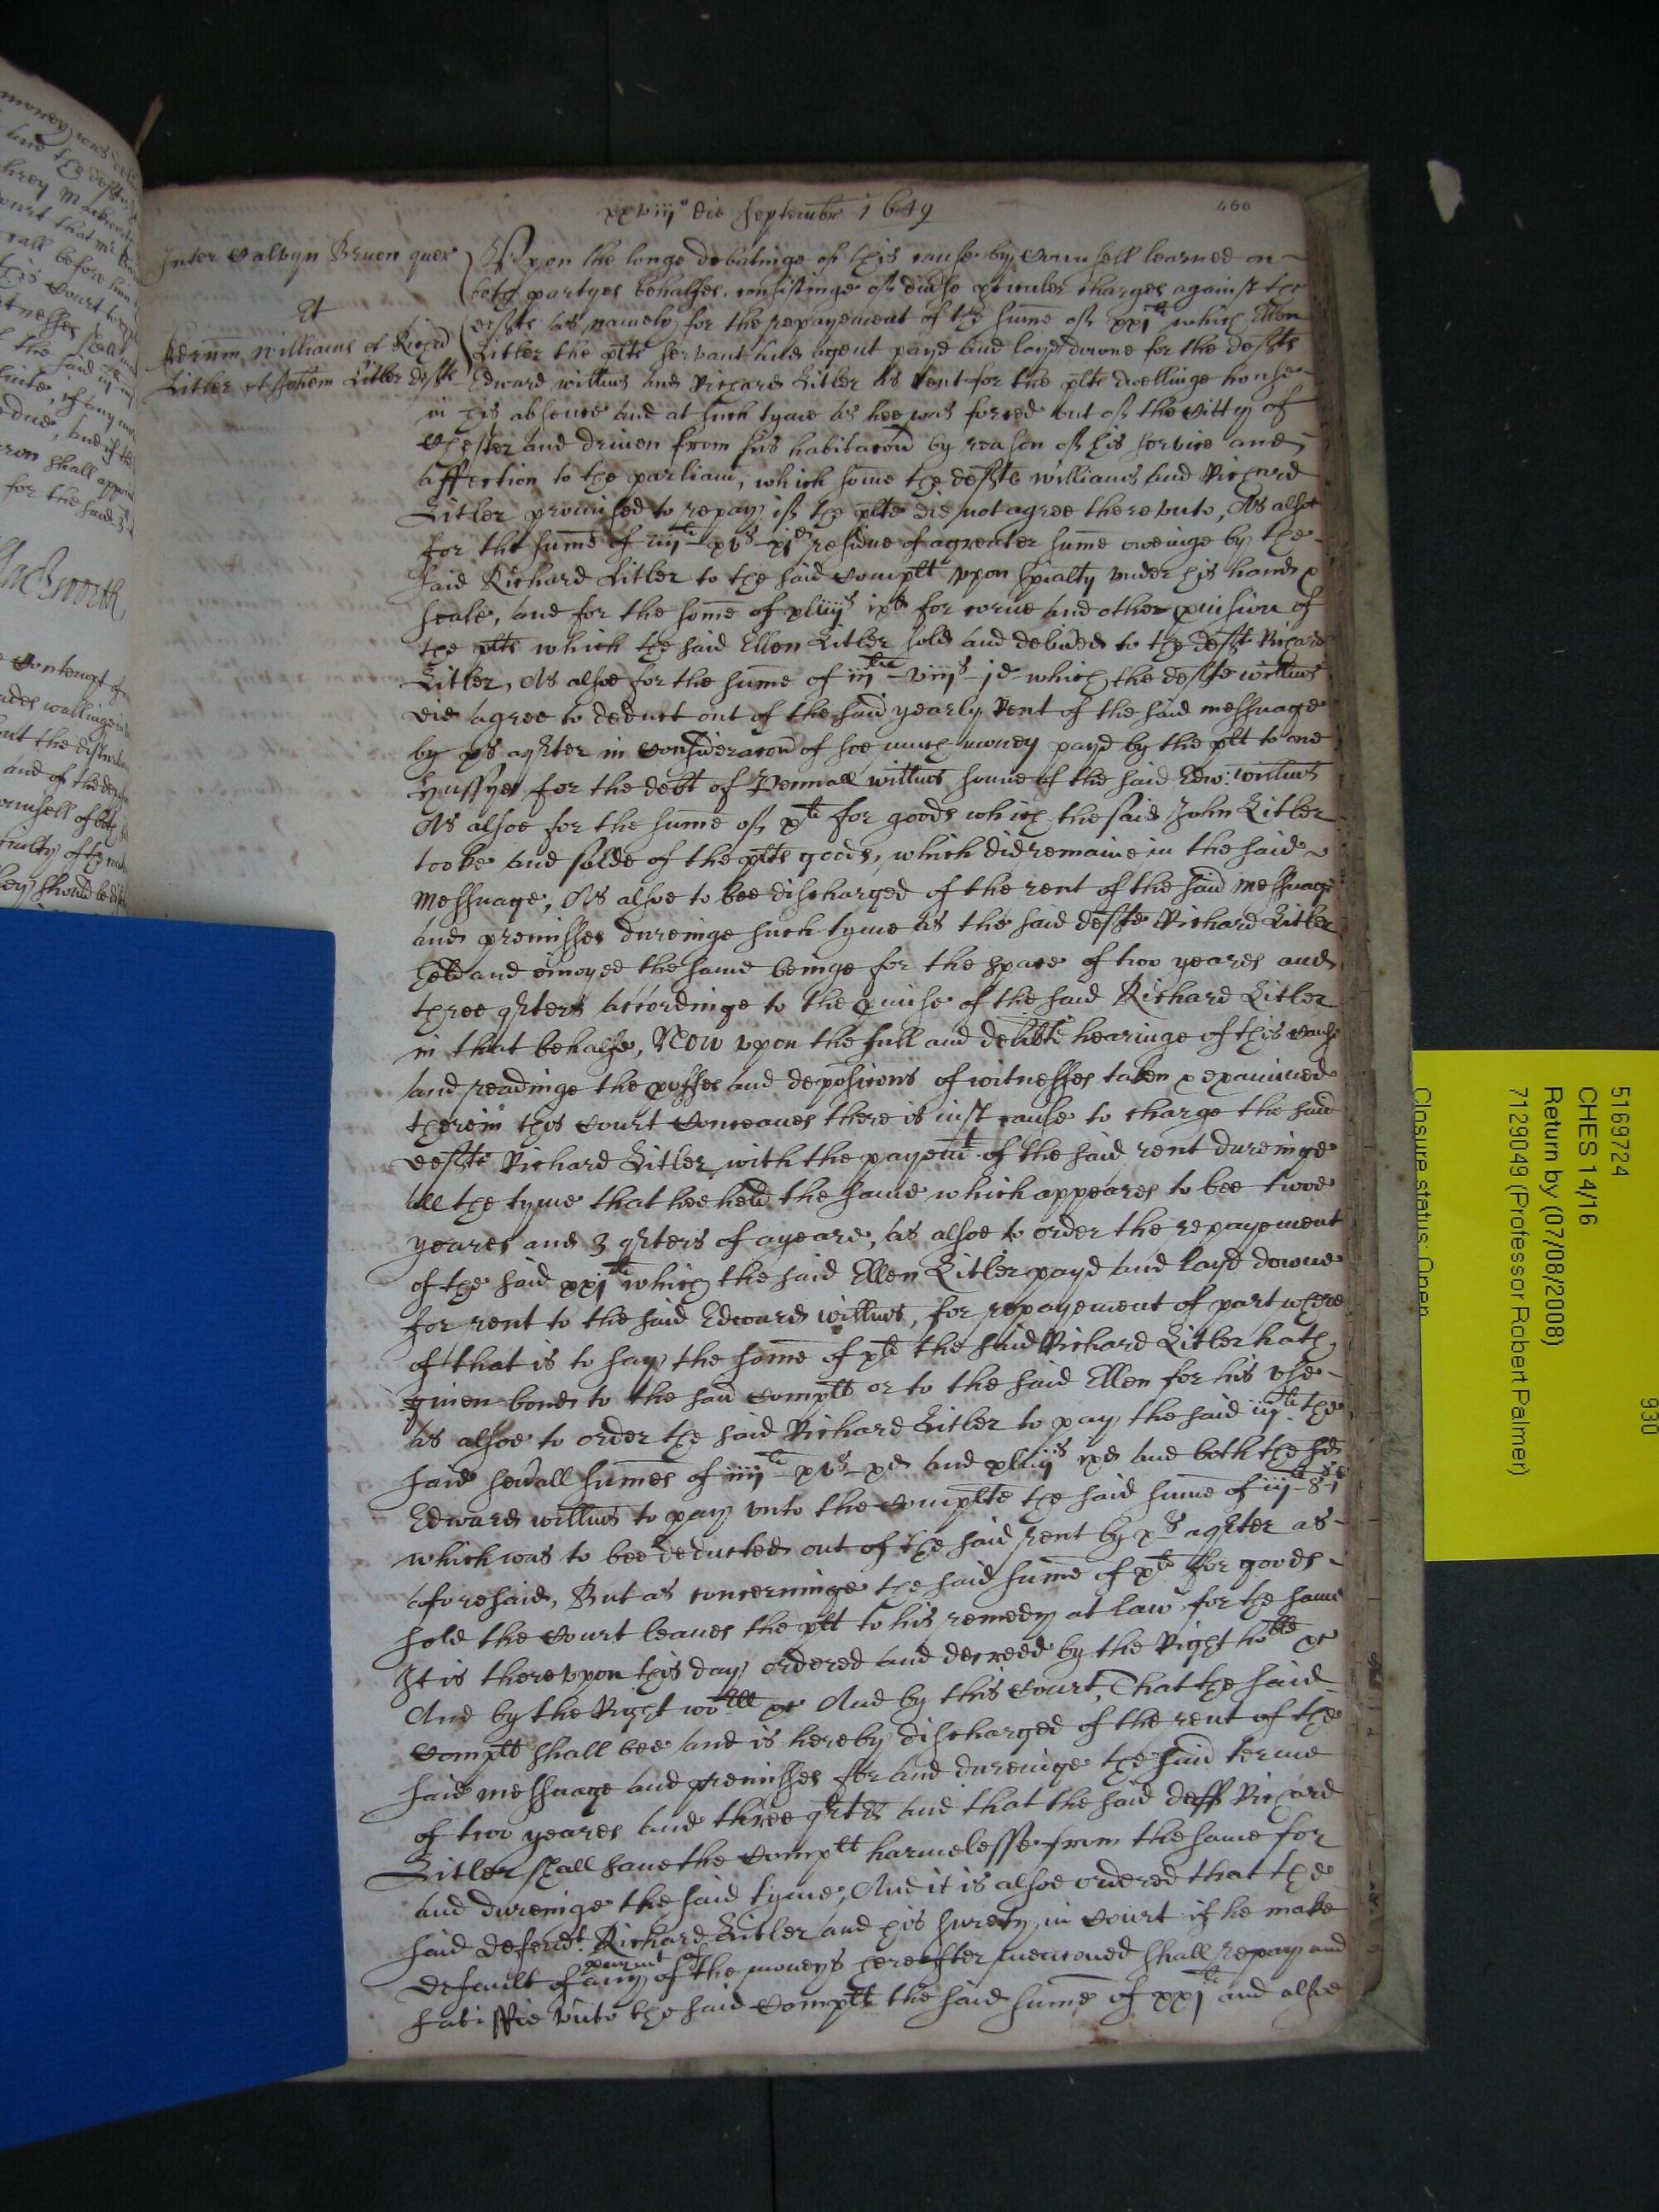 xxviij° die Septembr 1649
460
Inter Calvyn Bruen quer
Et
Edrum Williams et Ricĥd
Litler et Johem Litler defts
Vpon the longe debatinge of this cause by Counsell learned on
both partyes behalfes, consistinge of divse pticuler charges against the
defts as namely for the repayement of the sume of xxjli which Ellen
Litler the plts servant and agent payd and layd downe for the defts
Edward Willms and Richard Litler as Rent for the plts dwellinge house
in his absence and at such tyme as hee was forced out of the Citty of
Chester and driven from his habitacon by reason of his service and
affection to the parliamt, which some the defts Williams and Richard
Litler promised to repay if the plte did not agree therevnto, As alsoe
for the sume of iiijli xvs xjd residue of a greater sume oweinge by the
said Richard Litler to the said Complt vpon spialty vnder his hand &
seale, and for the some of xliijs ixd for corne and other pvision of
the plts which the said Ellen Litler sold and delivred to the deft Richard
Litler, As alsoe for the sume of iijli viijs jd which the defte Willms
did agree to deduct out of the said yearly Rent of the said messuage
by xs a qrter in Consideracon of soe much money payd by the plt to one
Hussye for the debt of Pennall Willms sonne of the said Edw: Willms
As alsoe for the sume of xli for goods which the said John Litler
tooke and solde of the plts goods, which did remaine in the said
Messuage, As alsoe to bee discharged of the rent of the said messuage
and premisses dureinge such tyme as the said defte Richard Litler
held and enioyed the same beinge for the space of two yeares and
three qrters accordinge to the pmise of the said Richard Litler
in that behalfe, Now vpon the full and delibte hearinge of this cause
and readinge the proffes and deposicons of witnesses taken & examined
therein this Court Conceaues there is iust cause to charge the said
defte Richard Litler with the payemt of the said rent dureinge
all the tyme that hee held the same which appeares to bee twoe
yeares and 3 qrters of a yeare, as alsoe to order the repayement
of the said xxjli which the said Ellen Litler payd and layd downe
for rent to the said Edward Willms, for repayement of part where
of that is to say the some of xli the said Richard Litler hath
given bond to the said Complt or to the said Ellen for his vse
as alsoe to order the said Richard Litler to pay the said the
said sevrall sumes of iiijli xvs xd and xliijs ixd and both the sd
Edward Willms to pay vnto the Complte the said sume of iijli 8s 1d
which was to bee deducted out of the said rent by xs a qrter as
aforesaid, But as concerninge the said sume of xli for goods
sold the Court leaues the plt to his remedy at law for the same
It is therevpon this day ordered and decreed by the Right hoble &c
And by the Right woll &c And by this Court, That the said
Complt shall bee and is hereby discharged of the rent of the
said messuage and premisses for and dureinge the said terme
of two yeares and three qrters and that the said deff Richard
Litler shall saue the Complt harmelesse from the same for
and dureinge the said tyme, And it is alsoe ordered that the
said defendt Richard Litler and his surety in Court if he make
paymt of
default of any of the moneys hereafter mencioned shall repay and
satisffie vnto the said Complt the said sume of xxjli and alsoe
5169724
CHES 14/16
Return by (07/08/2008)
7129049 (Professor Robert Palmer)
Closure status: Open
930